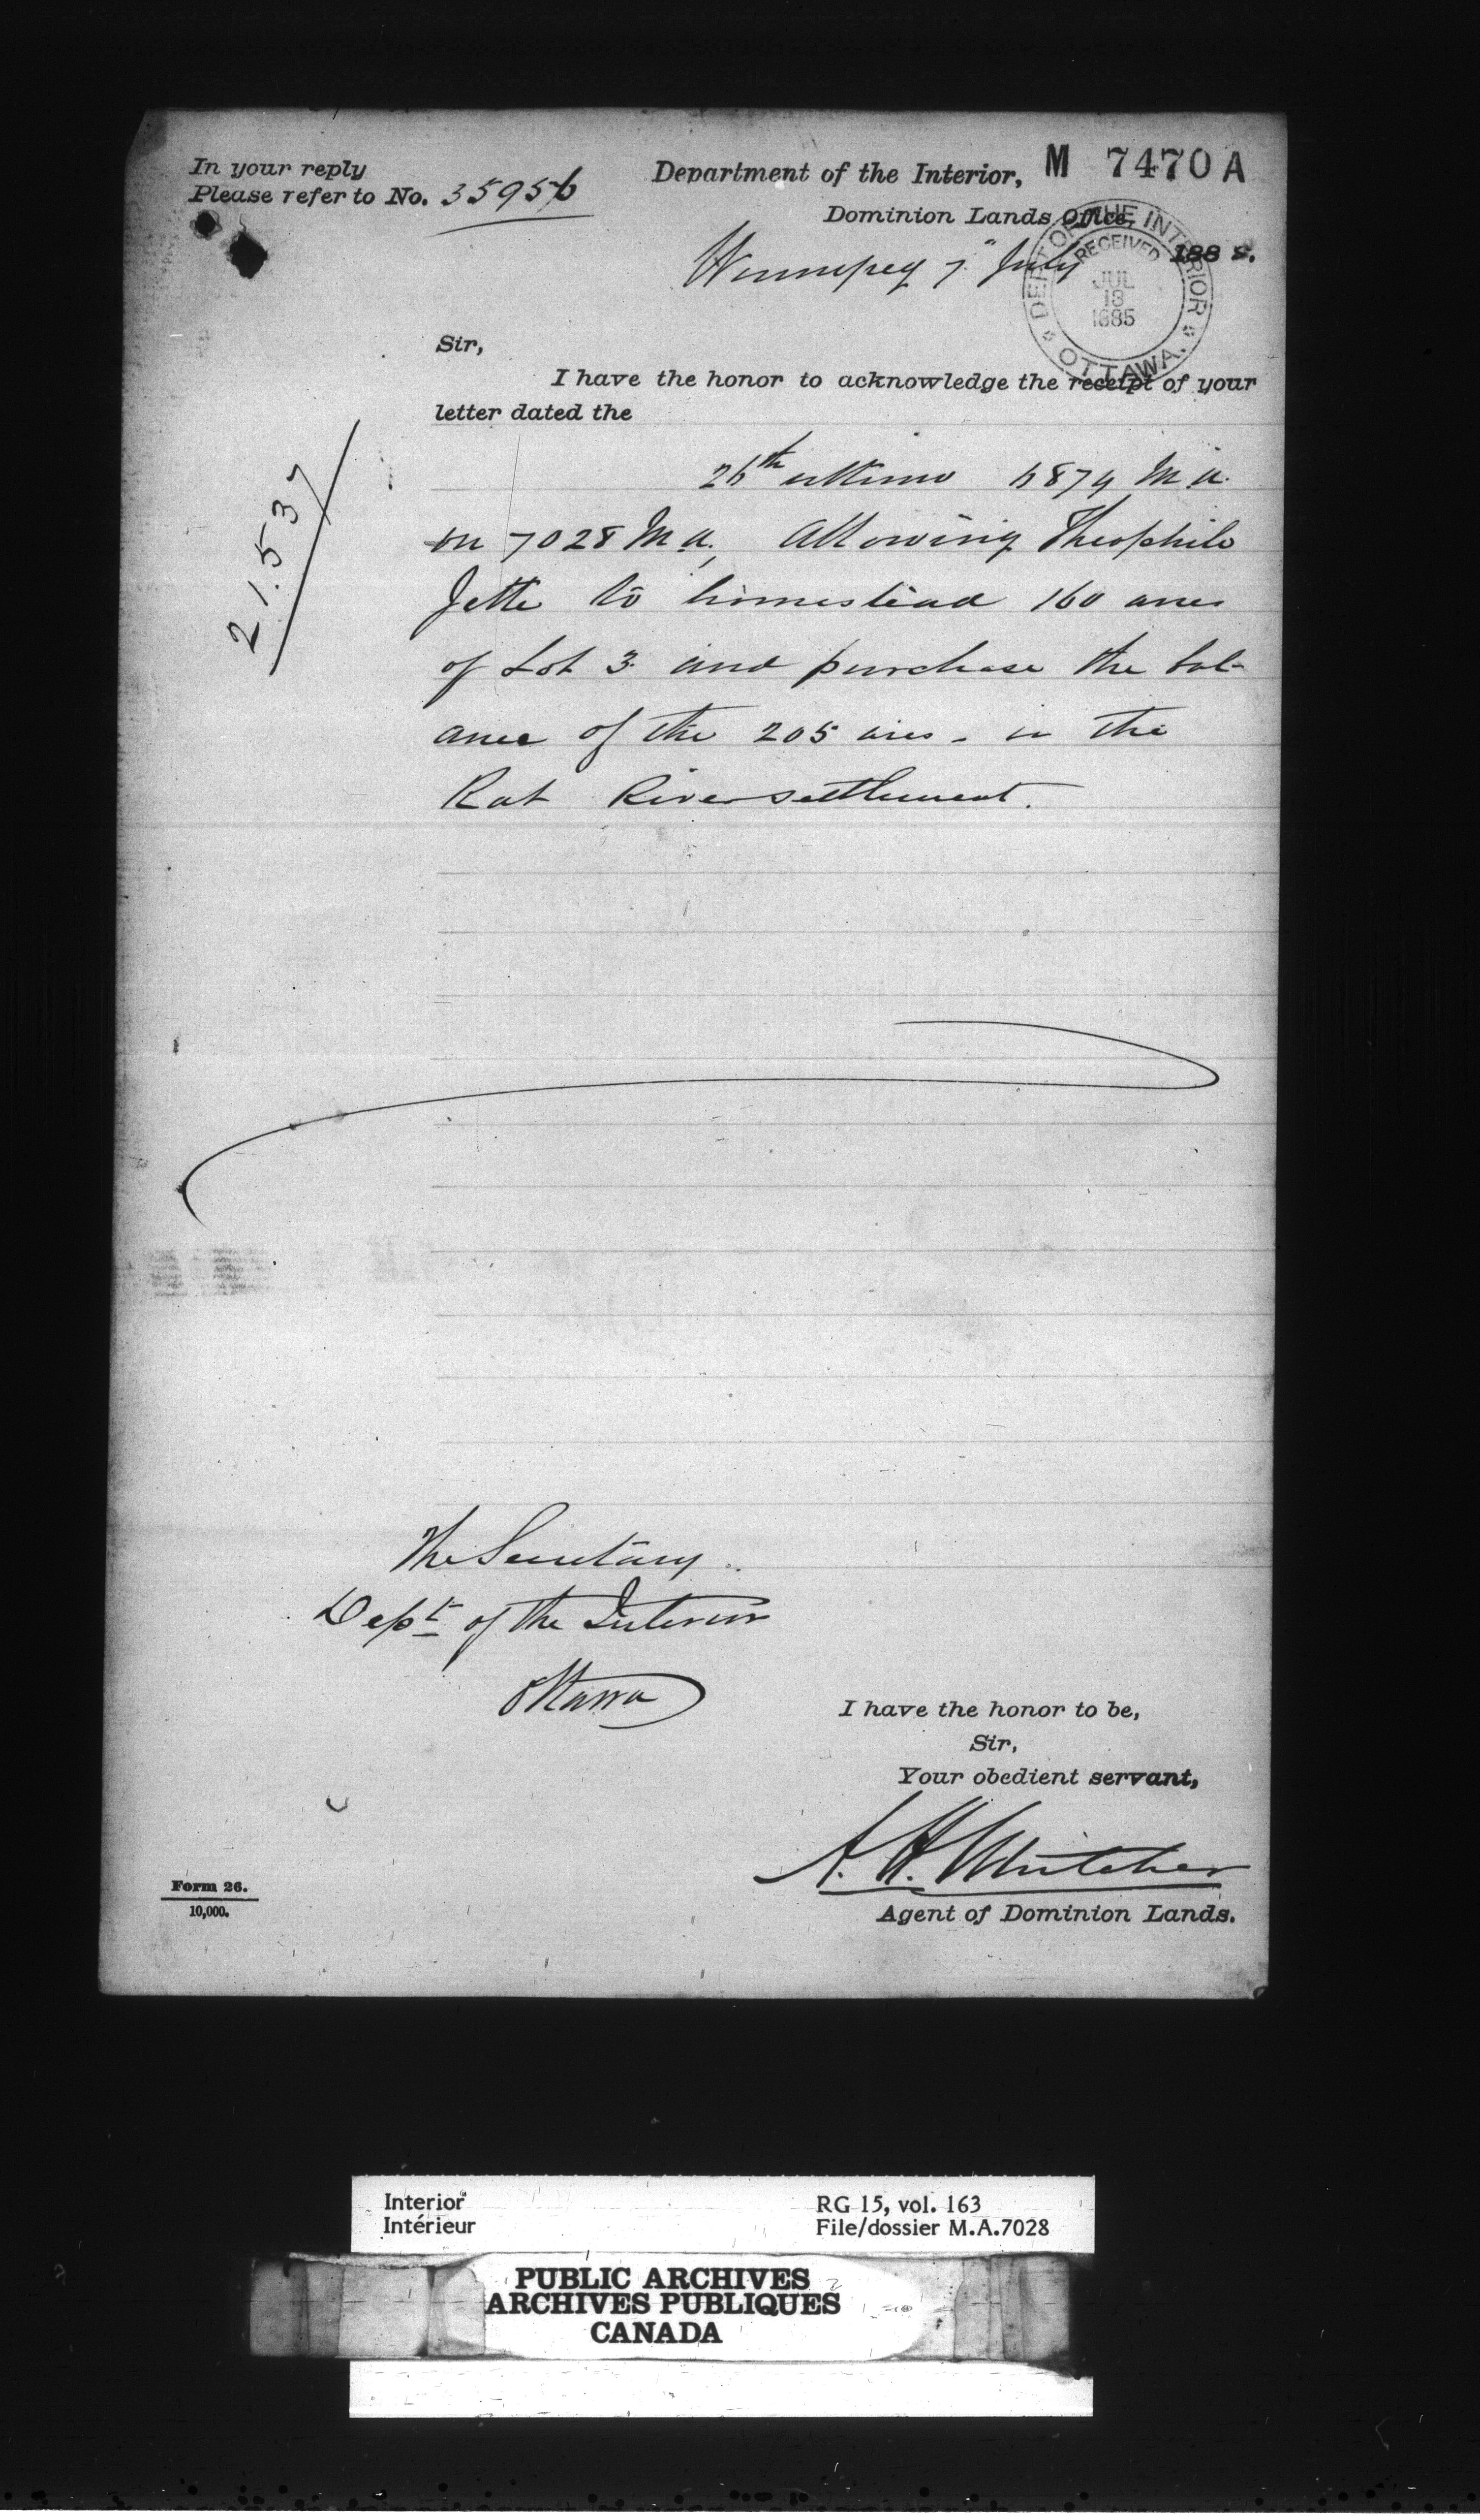 In your reply
Please refer to No. 35956
Department of the Interior,
M 7470 A
Dominion Lands Office,
Winnipeg 7" July 1885.
DEPT OF THE INTERIOR
RECEIVED
JUL
13
1885
OTTAWA.
Sir,
I have the honor to acknowledge the receipt of your
letter dated the
26th ultimo 6874 M.A.
on 7028 M.A., Allowing Theophile
Jette to homestead 160 acres
of Lot 3 and purchase the bal-
ance of the 205 acres - in the
Rat River settlement.
21.537
The Secretary
Dept of the Interior
Ottawa
I have the honor to be,
Sir,
Your obedient servant,
A. H. Whitcher
Agent of Dominion Lands.
Form 26.
10,000.
Interior
Intérieur
RG 15, vol. 163
File/dossier M.A.7028
PUBLIC ARCHIVES
ARCHIVES PUBLIQUES
CANADA